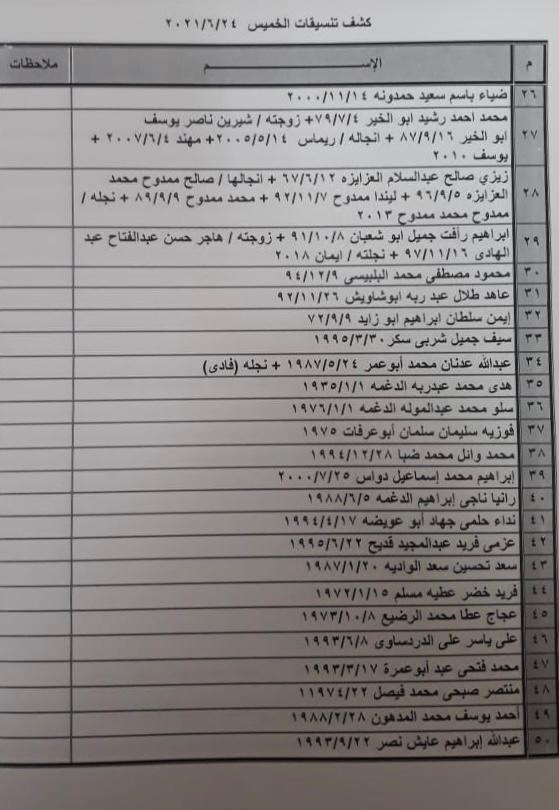 كشف تنسيقات الخميس ٢٠٢١/٦/٢٤
م الإســـــــم ملاحظات
٢٦ ضياء باسم سعيد حمدونه ٢٠٠٠/١١/١٤
٢٧ محمد احمد رشيد ابو الخير ٧٩/٧/٤+ زوجته / شيرين ناصر يوسف
ابو الخير ٨٧/٩/١٦ + انجاله / ريماس ٢٠٠٥/٥/١٤+ مهند ٢٠٠٧/٦/٤ +
يوسف ٢٠١٠
٢٨ زيزي صالح عبدالسلام العزايزه ٦٧/٦/١٢ + انجالها / صالح ممدوح محمد
العزايزه ٩٦/٩/٥ + ليندا ممدوح ٩٢/١١/٧ + محمد ممدوح ٨٩/٩/٩ + نجله /
ممدوح محمد ممدوح ٢٠١٣
٢٩ ابراهيم رأفت جميل ابو شعبان ٩١/١٠/٨ + زوجته / هاجر حسن عبدالفتاح عبد
الهادى ٩٧/١١/١٦ + نجلته / ايمان ٢٠١٨
٣٠ محمود مصطفي محمد البلبيسي ٩٤/١٢/٩
٣١ عاهد طلال عبد ربه ابوشاويش ٩٢/١١/٢٦
٣٢ إيمن سلطان ابراهيم ابو زايد ٧٢/٩/٩
٣٣ سيف جميل شربى سكر ١٩٩٥/٣/٣٠
٣٤ عبدالله عدنان محمد أبوعمر ١٩٨٧/٥/٢٤ + نجله (فادى)
٣٥ هدى محمد عبدربه الدغمه ١٩٣٥/١/١
٣٦ سلو محمد عبدالموله الدغمه ١٩٧٦/١/١
٣٧ فوزيه سليمان سلمان أبوعرفات ١٩٧٥
٣٨ محمد وائل محمد ضبا ١٩٩٤/١٢/٢٨
٣٩ إبراهيم محمد إسماعيل دواس ٢٠٠٠/٧/٢٥
٤٠ رانيا ناجى إبراهيم الدغمه ١٩٨٨/٦/٥
٤١ نداء حلمى جهاد أبو عويضه ١٩٩٤/٤/١٧
٤٢ عزمى فريد عبدالمجيد قديح ١٩٩٥/٦/٢٢
٤٣ سعد تحسين سعد الواديه ١٩٨٧/١/٢٠
٤٤ فريد خضر عطيه مسلم ١٩٧٢/١/١٥
٤٥ عجاج عطا محمد الرضيع ١٩٧٣/١٠/٨
٤٦ على ياسر على الدردساوى ١٩٩٣/٦/٨
٤٧ محمد فتحى عبد أبوعمرة ١٩٩٣/٣/١٧
٤٨ منتصر صبحى محمد فيصل ١١٩٧٤/٢٢
٤٩ أحمد يوسف محمد المدهون ١٩٨٨/٢/٢٨
٥٠ عبدالله إبراهيم عايش نصر ١٩٩٣/٩/٢٢